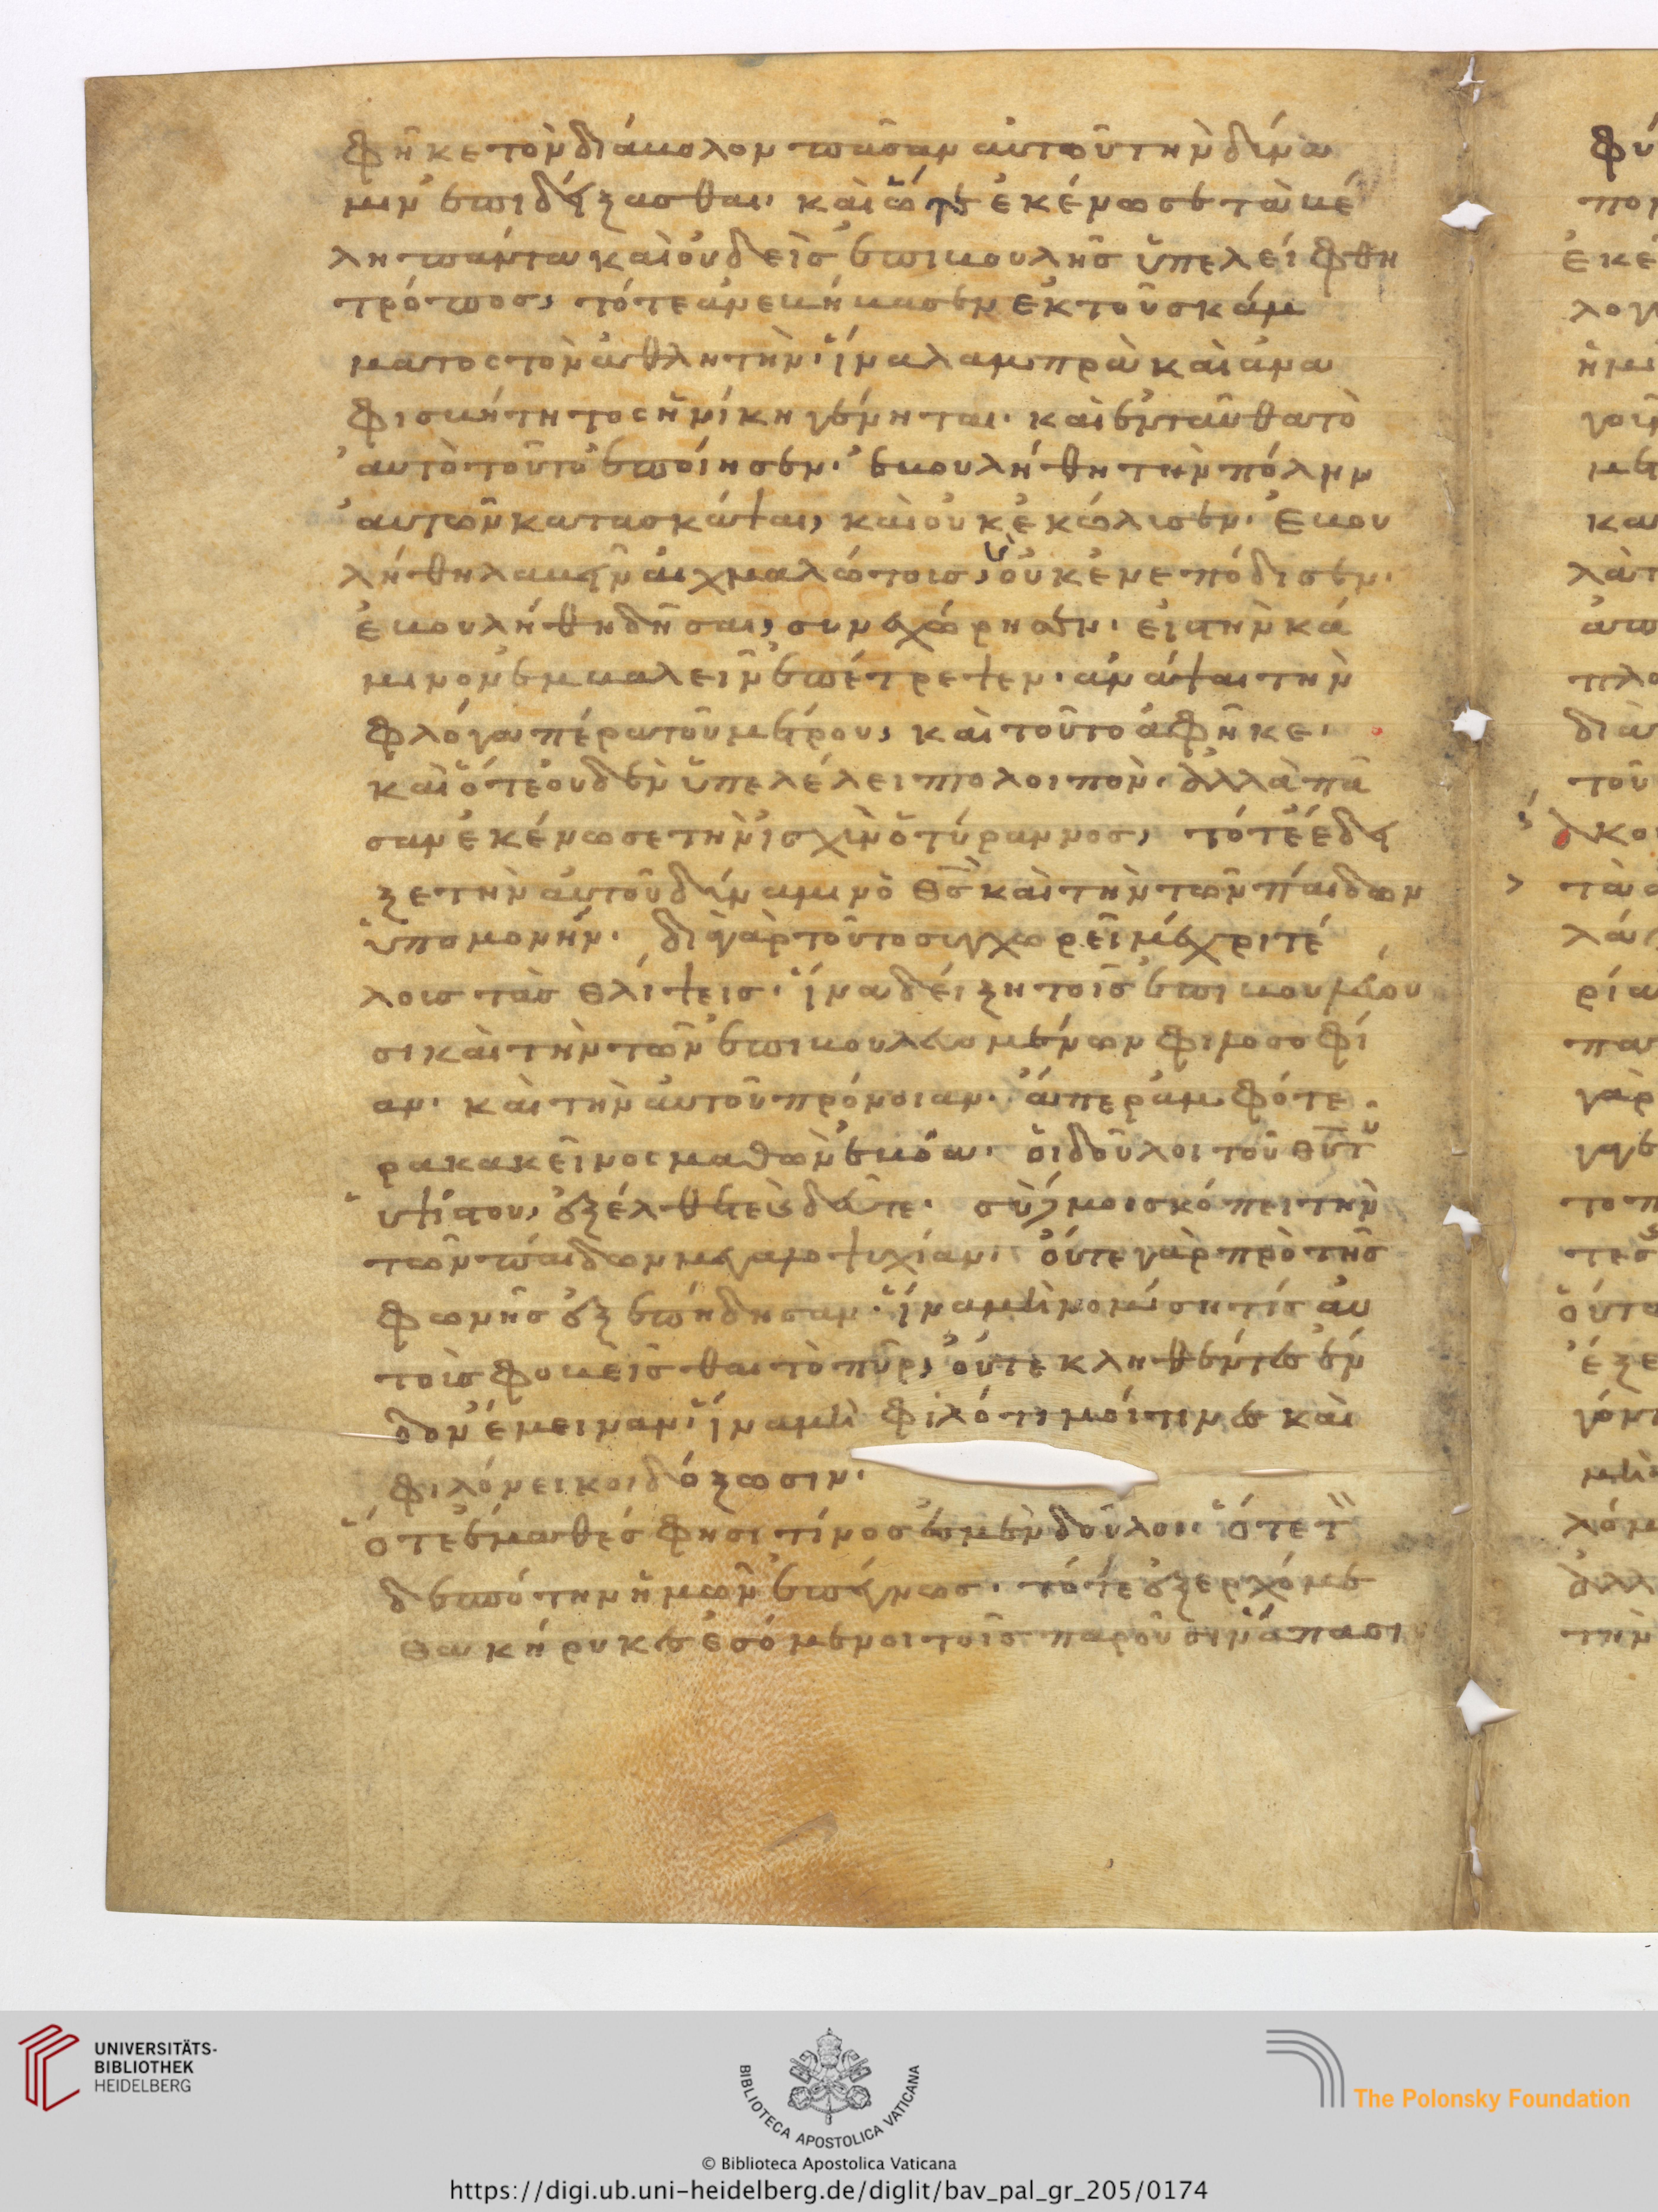 φῆκε τὸν διάβολον πᾶσαν αὐτοῦ τὴν δύνα
μιν ἐπιδείξασθαι· καὶ ὥστε ἐκένωσε τὰ βέ
λη πάντα καὶ οὐδεὶς ἐπιβουλῆς ὑπελείφθη
τρόπος, τότε ἀνεβίβασεν ἐκ τοῦ σκάμ
ματος τὸν ἀθλητὴν· ἵνα λαμπρὰ καὶ ἀνα
φισβήτητος ἡ νίκη γένηται· καὶ ἐνταῦθα τὸ
αὐτὸ τοῦτο ἐποίησεν· ἐβουλήθη τὴν πόλην
αὐτῶν κατασκάψαι, καὶ οὐκ ἐκώλυσεν· ἐβου
λήθη λαβεῖν αἰχμαλώτους, οὐκ ἐνεπόδισεν·
ἐβουλήθη δῆσαι, συνεχώρησεν· εἰς τὴν κά
μινον ἐμβαλεῖν ἐπέτρεψεν· ἀνάψαι τὴν
φλόγα πέρα τοῦ μέτρου, καὶ τοῦτο ἀφῆκε·
καὶ ὅτε οὐδὲν ὑπελέλειπτο λοιπὸν· ἀλλὰ πᾶ
σαν ἐκένωσε τὴν ἰσχὺν ὁ τύραννος, τότε ἔδει
ξε τὴν αὐτοῦ δύναμιν ὁ θς καὶ τὴν τῶν παίδων
ὑπομονήν· διὰ γὰρ τοῦτο συγχωρεῖ μέχρι τέ
λους τὰς θλίψεις· ἵνα δείξη τοῖς ἐπιβουλεύου
σι καὶ τὴν τῶν ἐπιβουλευομένων φιλοσοφί
αν· καὶ τὴν αὐτοῦ πρόνοιαν· ἅπερ ἀμφότε
ρα κἀκεῖνος μαθὼν ἐβόα· οἱ δοῦλοι τοῦ θυ τοῦ
ὑψίστου, ἐξέλθετε δεῦτε· σὺ μοι σκόπει τὴν
τῶν παίδων μεγαλοψυχίαν· οὔτε γὰρ πρὸ τῆς
φωνῆς ἐξεπήδησαν· ἵνα μὴ νομίση τίς αὐ
τοὺς φοβεῖσθαι τὸ πῦρ, οὔτε κληθέντες ἔν
δον ἔμειναν· ἵνα μὴ φιλότιμοί τινες καὶ
φιλόνεικοι δόξωσιν·
ὅτε ἔμαθες φησὶ τίνος ἐσμὲν δοῦλοι· ὅτε τὸν
δεσπότην ἡμῶν ἐπέγνως· τότε ἐξερχόμε
θα κήρυκες ἐσόμενοι τοῖς παροῦσιν ἅπασι
UNIVERSITÄTS-
BIBLIOTHEK
HEIDELBERG
BIBLIOTECA APOSTOLICA VATICANA
The Polonsky Foundation
© Biblioteca Apostolica Vaticana
https://digi.ub.uni-heidelberg.de/diglit/bav_pal_gr_205/0174